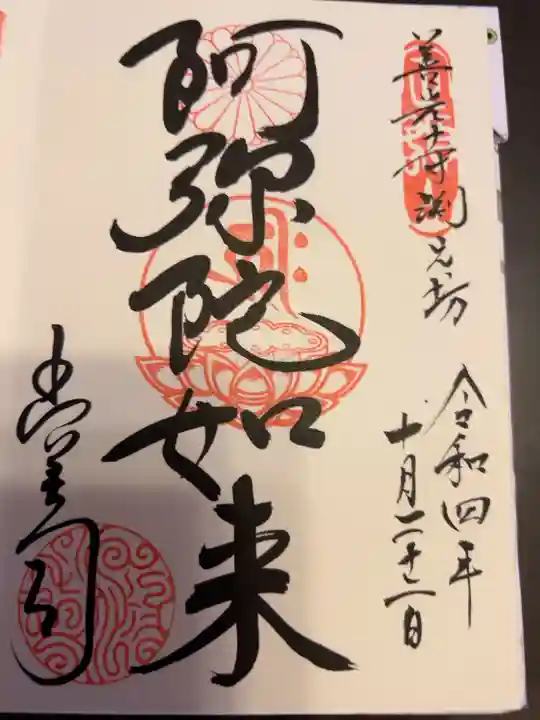 善光寺 淵之坊
令和四年
十月二十二日
阿弥陀如来